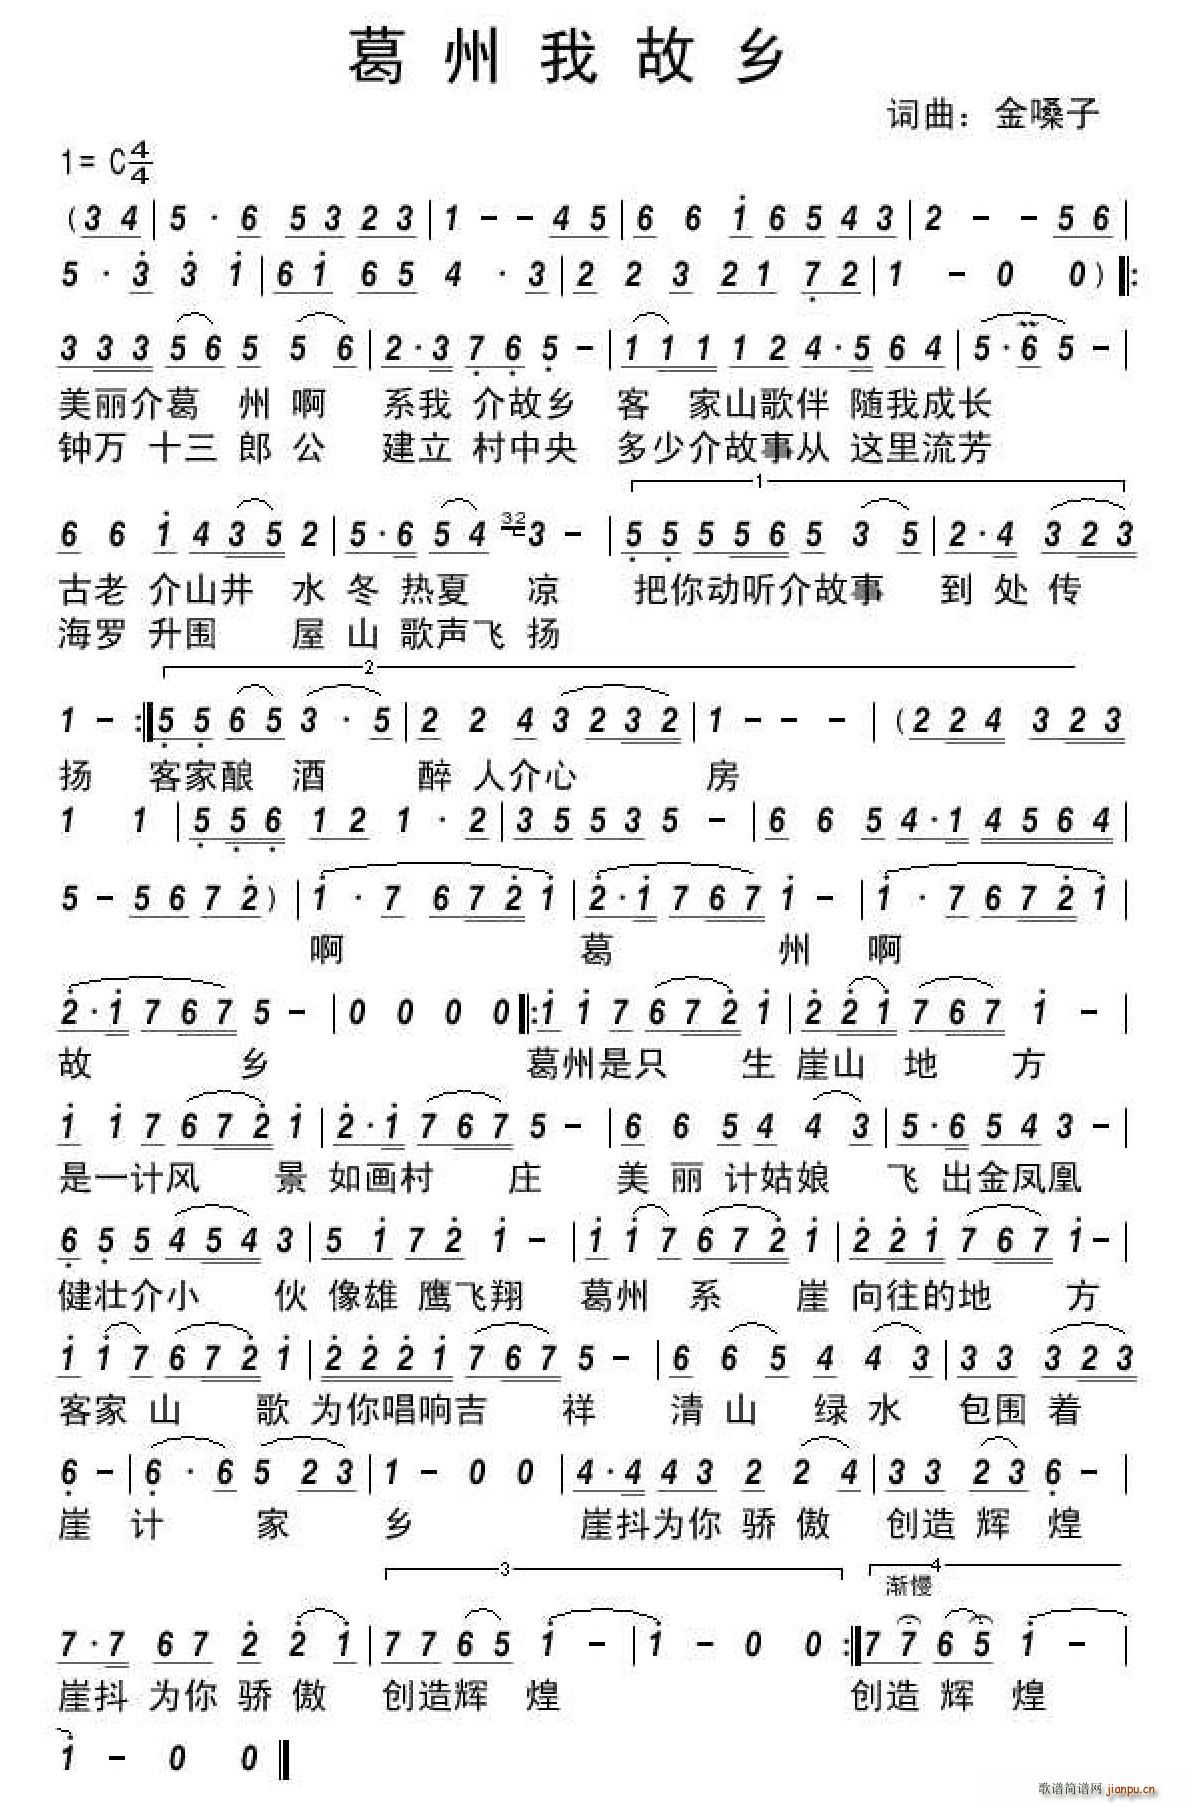 葛州我故乡
词曲：金嗓子
1=C4/4
(3 4|5·6 5 3 2 3|1--4 5|6 6 1 6 5 4 3|2--5 6|
5·3 3 1|6 1 6 5 4·3|2 2 3 2 1 7 2|1-0 0)‖:
3 3 3 5 6 5 5 6|2·3 7 6 5-|1 1 1 1 1 2 4·5 6 4|5·6 5-|
美丽介葛 州 啊 系我 介故乡 客 家山歌伴 随我成长
钟万 十三 郎 公 建立 村中央 多少介故事从 这里流芳
1
6 6 1 4 3 5 2|5·6 5 4 32 3-|5 5 5 5 6 5 3 5|2·4 3 2 3
古老 介山井 水 冬 热夏 凉 把你动听介故事 到 处 传
海罗 升围 屋 山 歌声飞 扬
2
1-:‖5 5 6 5 3·5|2 2 4 3 2 3 2|1---|(2 2 4 3 2 3
扬 客家酿 酒 醉 人介心 房
1 1|5 5 6 1 2 1·2|3 5 5 3 5-|6 6 5 4·1|4 5 6 4|
5-5 6 7 2)|1·7 6 7 2 1|2·1 7 6 7 1-|1·7 6 7 2 1|
啊 葛 州 啊
2·1 7 6 7 5-|0 0 0 0‖:1 1 7 6 7 2 1|2 2 1 7 6 7 1-|
故 乡 葛州是只 生 崖山 地 方
1 1 7 6 7 2 1|2·1 7 6 7 5-|6 6 5 4 4 3|5·6 5 4 3-|
是一计风 景 如画村 庄 美 丽 计姑娘 飞 出金凤凰
6 5 5 4 5 4 3|5 1 7 2 1-|1 1 7 6 7 2 1|2 2 1 7 6 7 1-|
健壮介小 伙 像雄 鹰飞翔 葛州 系 崖 向往的地 方
1 1 7 6 7 2 1|2 2 2 1 7 6 7 5-|6 6 5 4 4 3|3 3 3 2 3
客家 山 歌 为你唱响吉 祥 清 山 绿 水 包围 着
6-|6·6 5 2 3|1-0 0|4·4 4 3 2 2 4|3 3 2 3 6-|
崖 计 家 乡 崖抖为你 骄 傲 创造 辉 煌
3 4
渐慢
7·7 6 7 2 2 1|7 7 6 5 1-|1-0 0:‖7 7 6 5 1-|
崖抖 为你 骄 傲 创造辉 煌 创造 辉 煌
1-0 0‖
歌谱简谱网 jianpu.cn